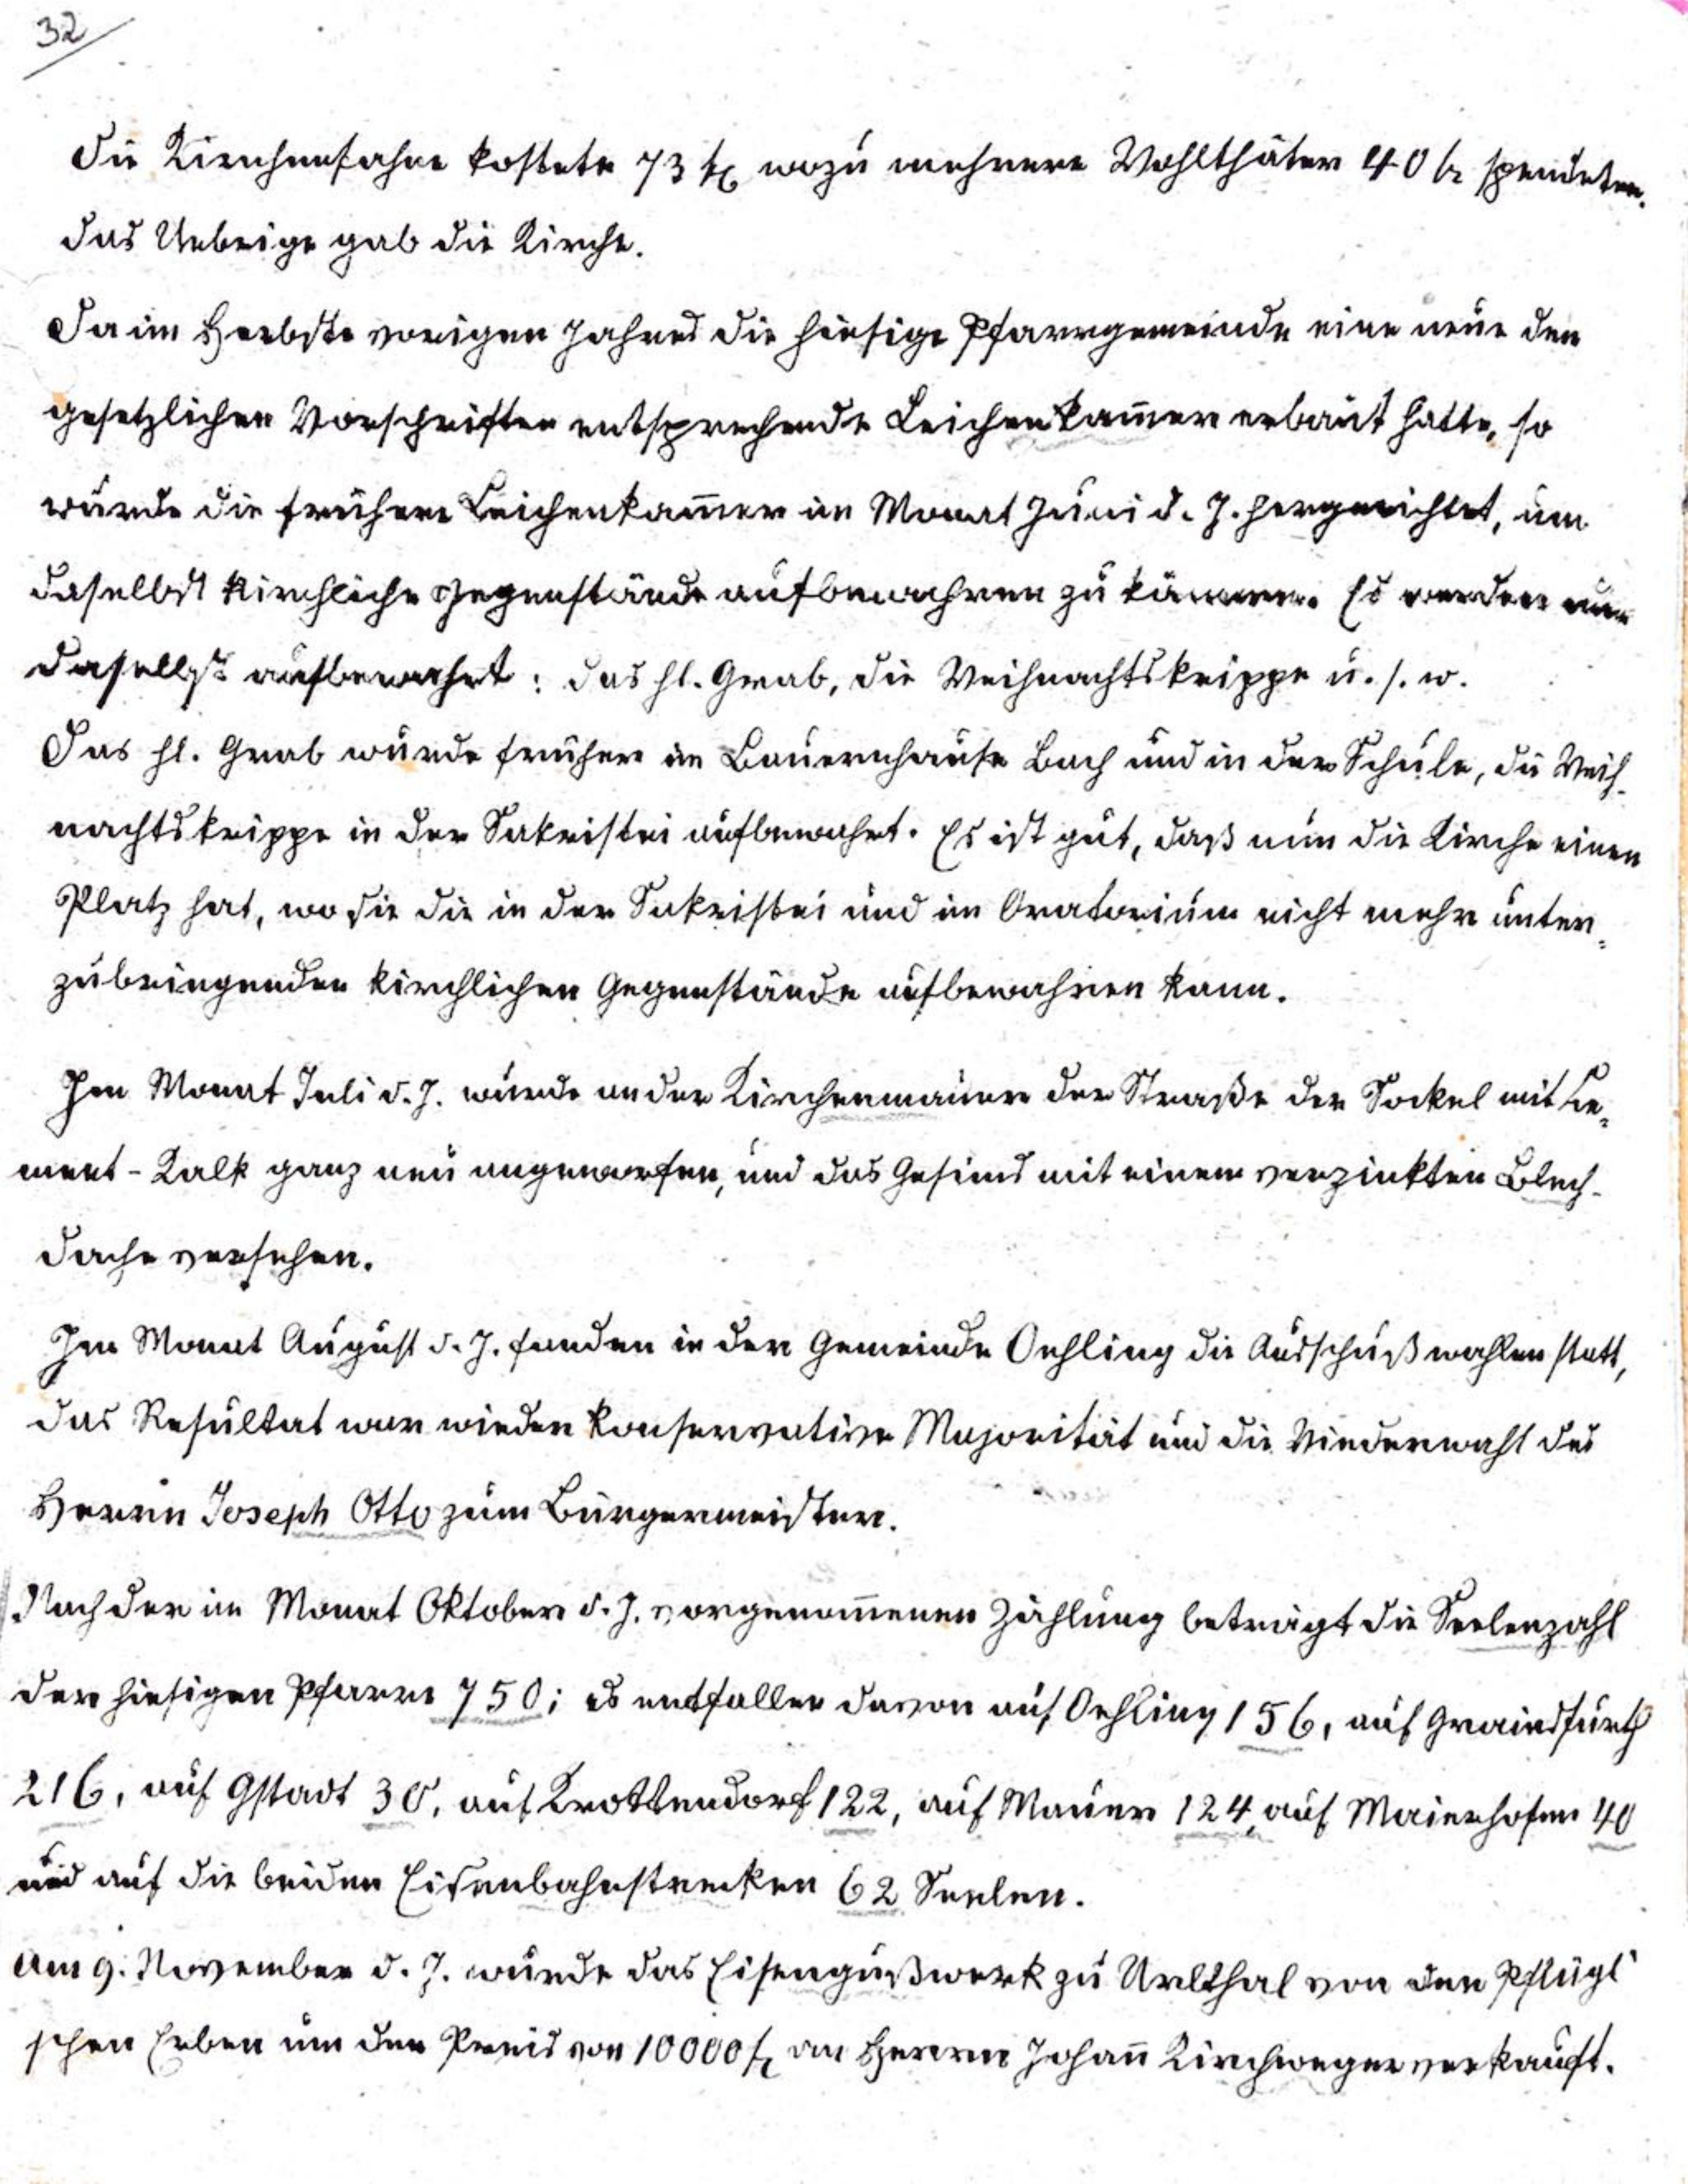 32
Die Kirchenfahne kostete 73 fl wozu mehrere Wohlthäter 40 fl spendeten.
das Uebrige gab die Kirche.
Da im Herbste vorigen Jahres die hiesige Pfarrgemeinde eine neue den
gesetzlichen Vorschriften entsprechende Leichenkam̅er erbaut hatte, so
wurde die frühere Leichenkam̅er im Monat Juni d. J. hergerichtet, um
daselbst kirchliche Gegenstände aufbewahren zu können. Es werden nun
daselbst aufbewahrt: das hl. Grab, die Weihnachtskrippe u. s. w.
Das hl. Grab wurde früher im Bauernhause Bach und in der Schule, die Weih-
nachtskrippe in der Sakristei aufbewahrt. Es ist gut, daß nun die Kirche einen
Platz hat, wo sie die in der Sakristei und im Oratorium nicht mehr unter-
zubringenden kirchlichen Gegenstände aufbewahren kann.
Im Monat Juli d. J. wurde an der Kirchenmauer der Straße der Sockel mit Ce-
ment-Kalk ganz neu angeworfen, und das Gesims mit einem verzinkten Blech-
dache versehen.
Im Monat August d. J. fanden in der Gemeinde Oehling die Ausschußwahlen statt,
das Resultat war wieder konservative Majorität und die Wiederwahl des
Herrn Joseph Otto zum Bürgermeister.
Nach der im Monat Oktober d. J. vorgenom̅enen Zählung beträgt die Seelenzahl
der hiesigen Pfarre 750; es entfallen davon auf Oehling 156, auf Grainsfurth
216, auf Gstadt 30, auf Krottendorf 122, auf Mauer 124, auf Maierhofen 40
und auf die beiden Eisenbahnstrecken 62 Seelen.
Am 9. November d. J. wurde das Eisengußwerk zu Urlthal von den Pflügl'
schen Erben um den Preis von 10000 fl an Herrn Johan̅ Kirchweger verkauft.